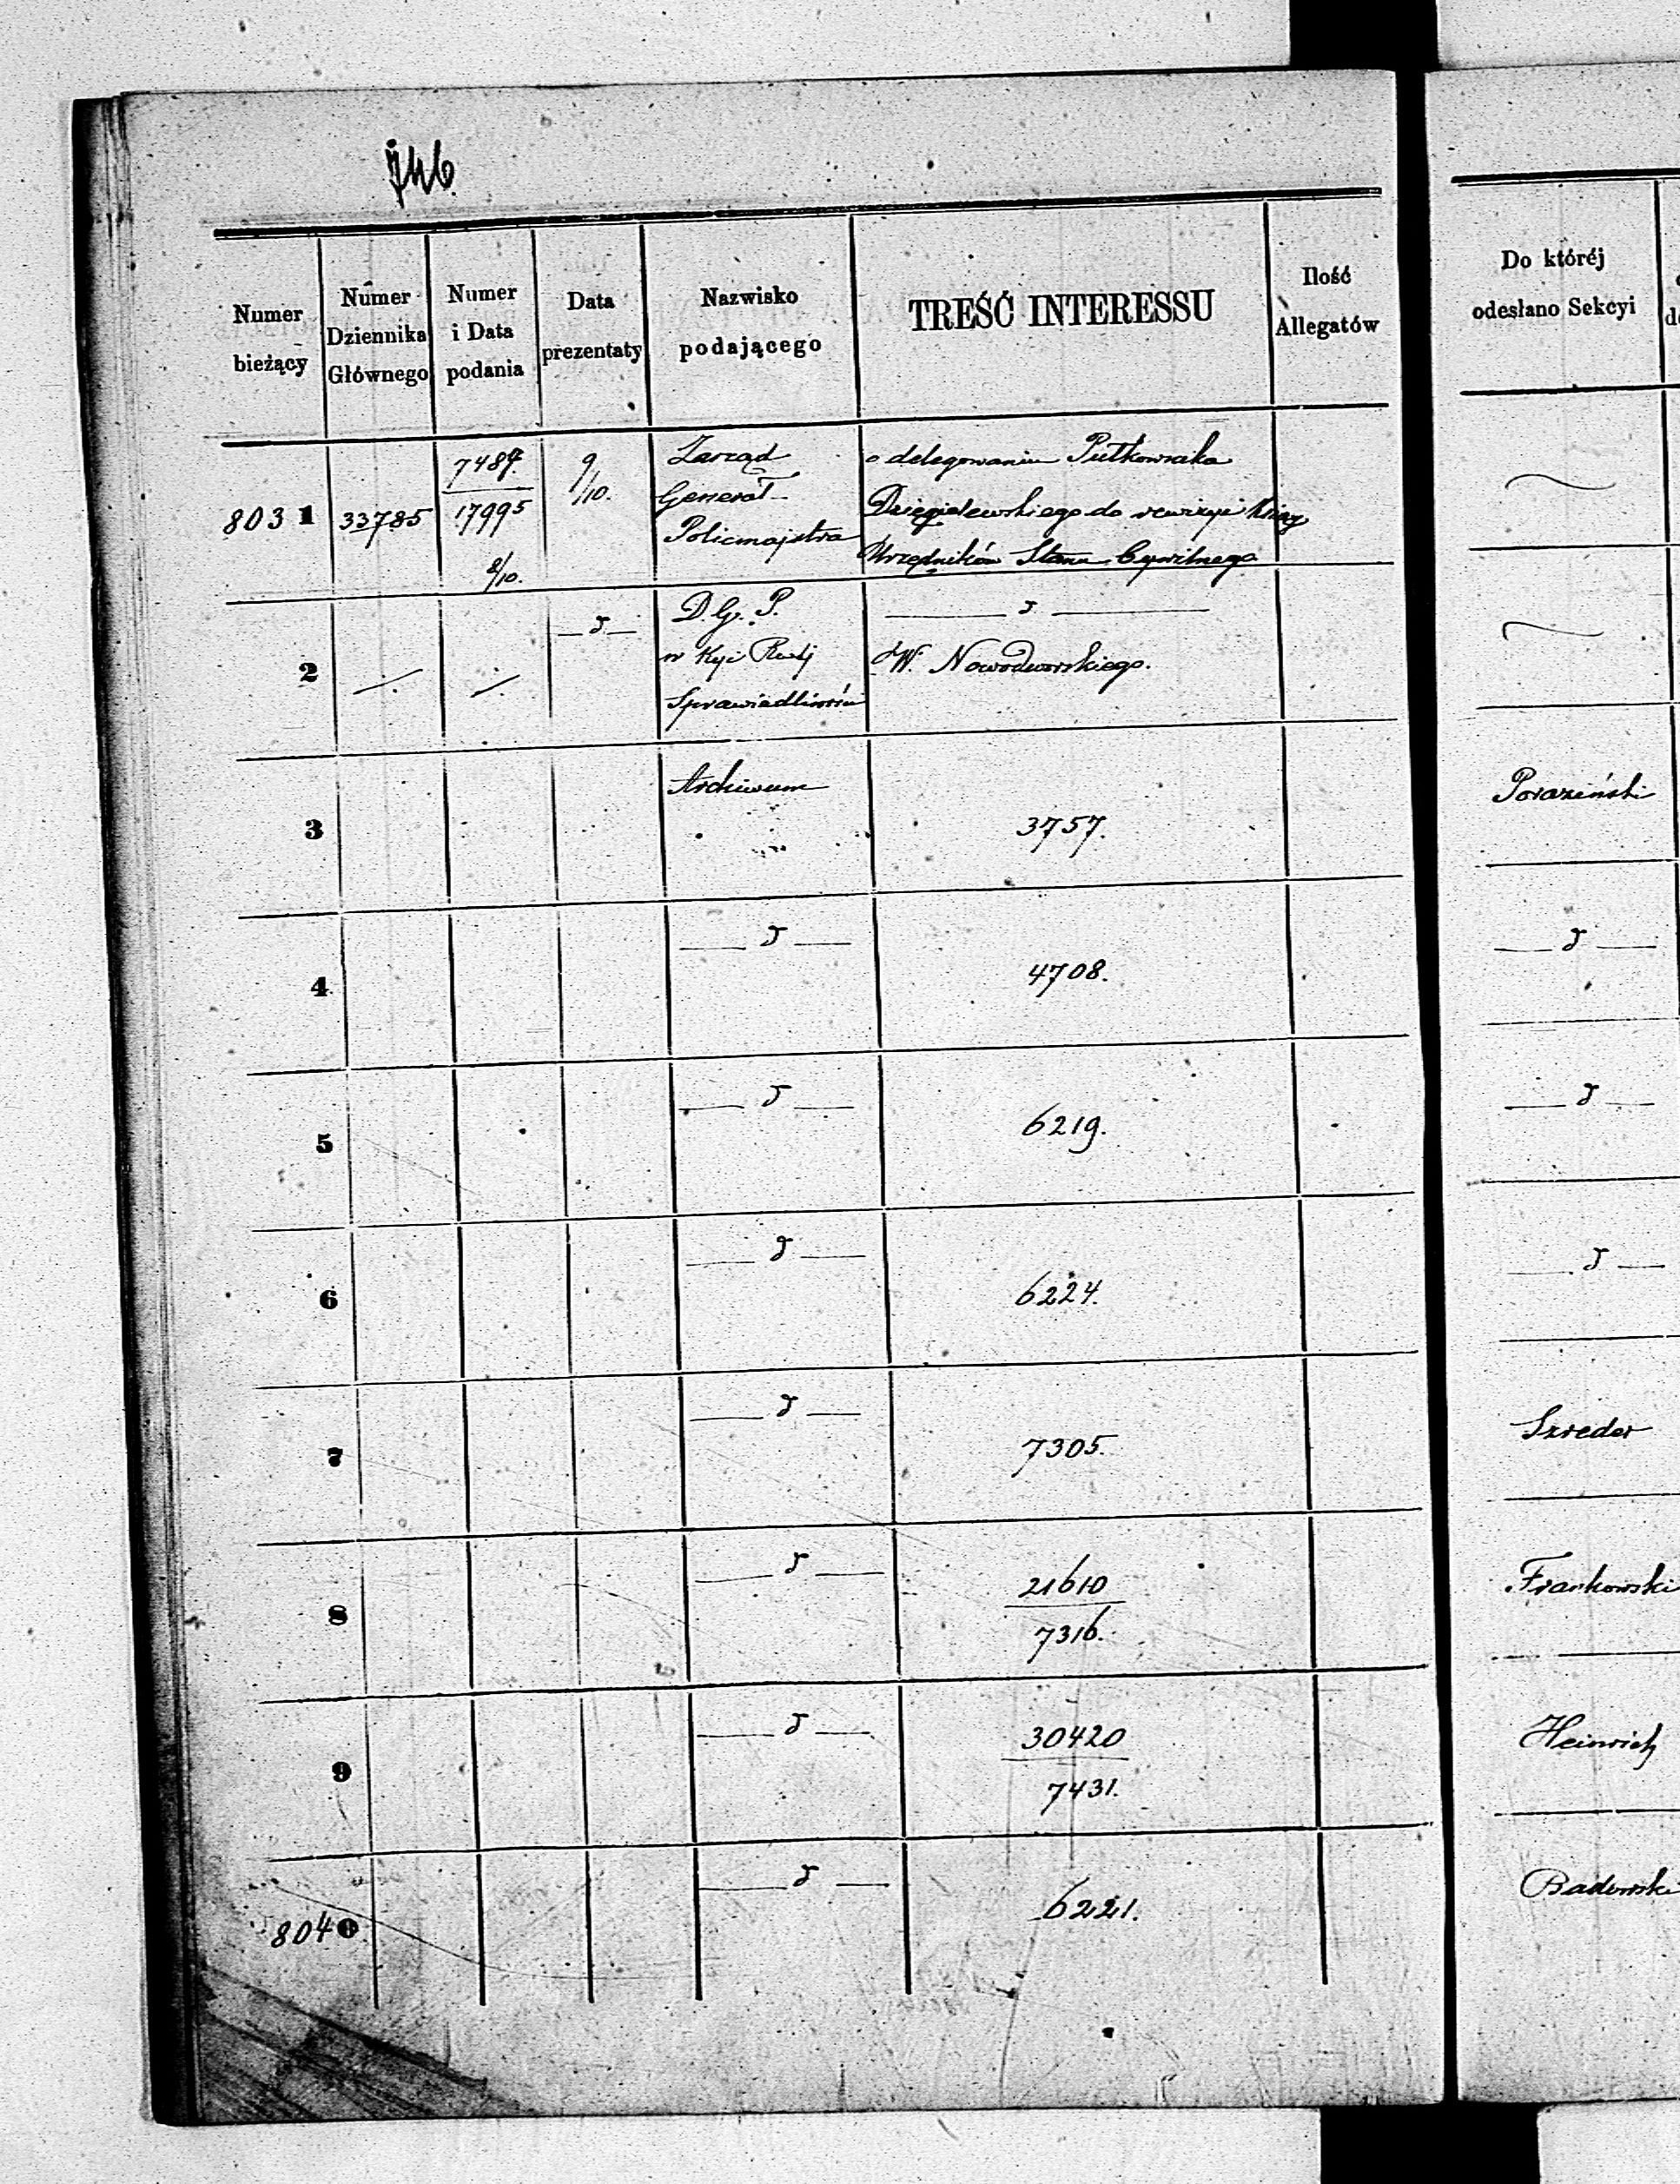 746.
Numer bieżący
Numer Dziennika Głównego
Numer i Data podania
Data prezentaty
Nazwisko podającego
TREŚĆ INTERESSU
Ilość Allegatów
Do któréj odesłano Sekcyi
8031
33785
7487
17995
8/10.
9/10.
Zarząd
Generał
Policmajstra
o delegowaniu Pułkownika
Dzięgielewskiego do rewizyi ksiąg
Urzędników Stanu Cywilnego
2
D. G. P.
w Kyi Rząj
Sprawiedliwości
W. Nowodworskiego.
3
Archiwum
3757.
Poraziński
4
4708.
5
6219.
6
6224.
7
7305.
Szreder
8
21610
7316.
Frankowski
9
30420
7431.
Heinrich
8040
6221.
Badowski